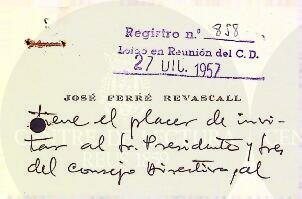 Registro n.º 858
Leído en Reunión del C. D.
27 DIC. 1957
JOSÉ FERRÉ REVASCALL
tiene el placer de invi-
tar al Sr. Presidente y Sres
del Consejo Directivo, al